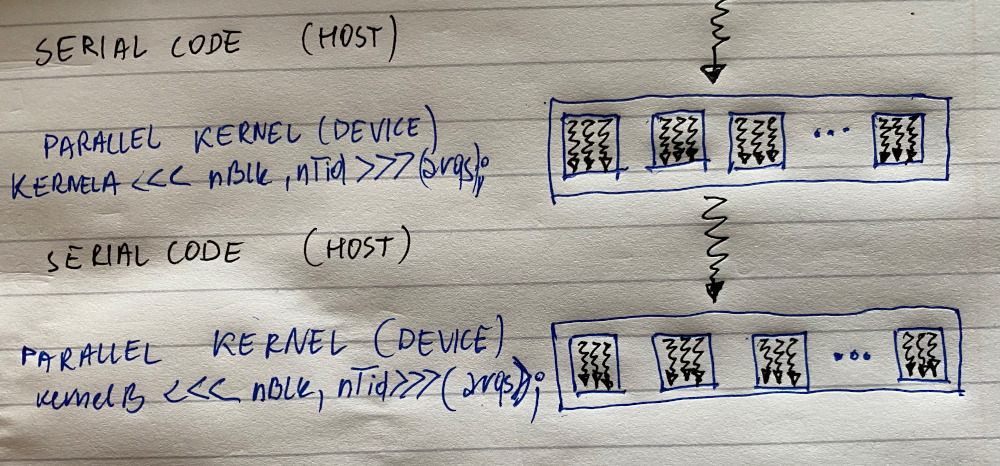 SERIAL CODE (HOST)
PARALLEL KERNEL (DEVICE)
KERNELA <<< nBlk, nTid >>> (args);
...
SERIAL CODE (HOST)
PARALLEL KERNEL (DEVICE)
KernelB <<< nBlk, nTid>>> (args);
...